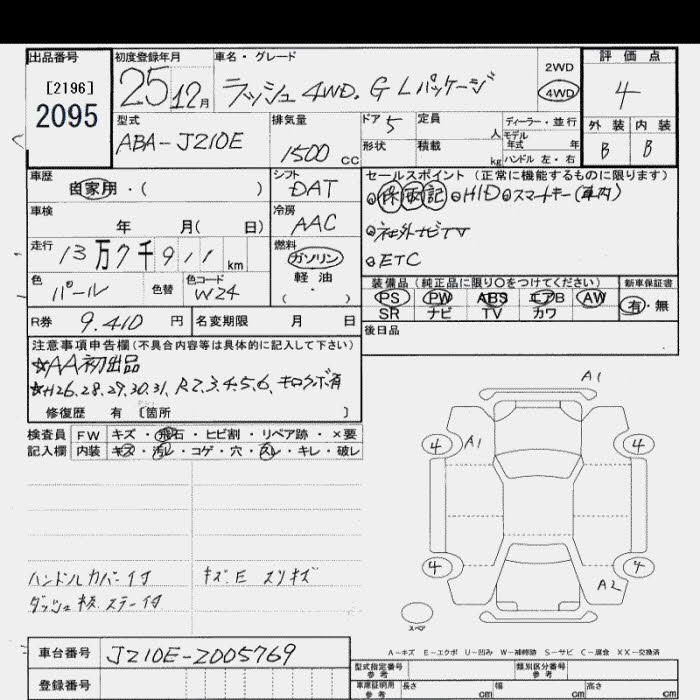 出品番号 初度登録年月 車名・グレード 評価点
[2196] 2095 25 12月 ラッシュ 4WD. G Lパッケージ 2WD 4WD 4
型式 ABA-J210E 排気量 1500 CC ドア 5 定員 人 ディーラー・並行 外装 内装
形状 積載 kg モデル年式 年 ハンドル 左・右 B B
車歴 自家用・( ) シフト DAT セールスポイント (正常に機能するものに限ります)
車検 年 月( 日) 冷房 AAC ◎保取記 ◎HID ◎スマートキー(車内)
走行 13万7千911 km 燃料 ガソリン 軽油 ( ) ◎社外ナビTV
◎ETC
色 パール 色替 色コード W24 装備品 (純正品に限り○をつけてください) 新車保証書
PS PW ABS エアB AW 有・無
SR ナビ TV カワ
R券 9.410 円 名変期限 月 日 後日品
注意事項申告欄(不具合内容等は具体的に記入して下さい)
☆AA初出品
☆H26.28.29.30.31. R2.3.4.5.6. キロクボ有
修復歴 有 〔箇所 〕
検査員 FW キズ・飛石・ヒビ割・リペア跡・×要
記入欄 内装 キズ・汚レ・コゲ・穴・スレ・キレ・破レ
A1
4 A1 4
4 A2 4
スペア
ハンドルカバー付 キズ.E スリキズ
ダッシュ板ステー付
A-キズ E-エクボ U-凹み W-補修跡 S-サビ C-腐食 XX-交換済
車台番号 J210E-2005769 型式指定番号 参考 類別区分番号 参考
登録番号 車庫証明用 参考 長さ cm 幅 cm 高さ cm